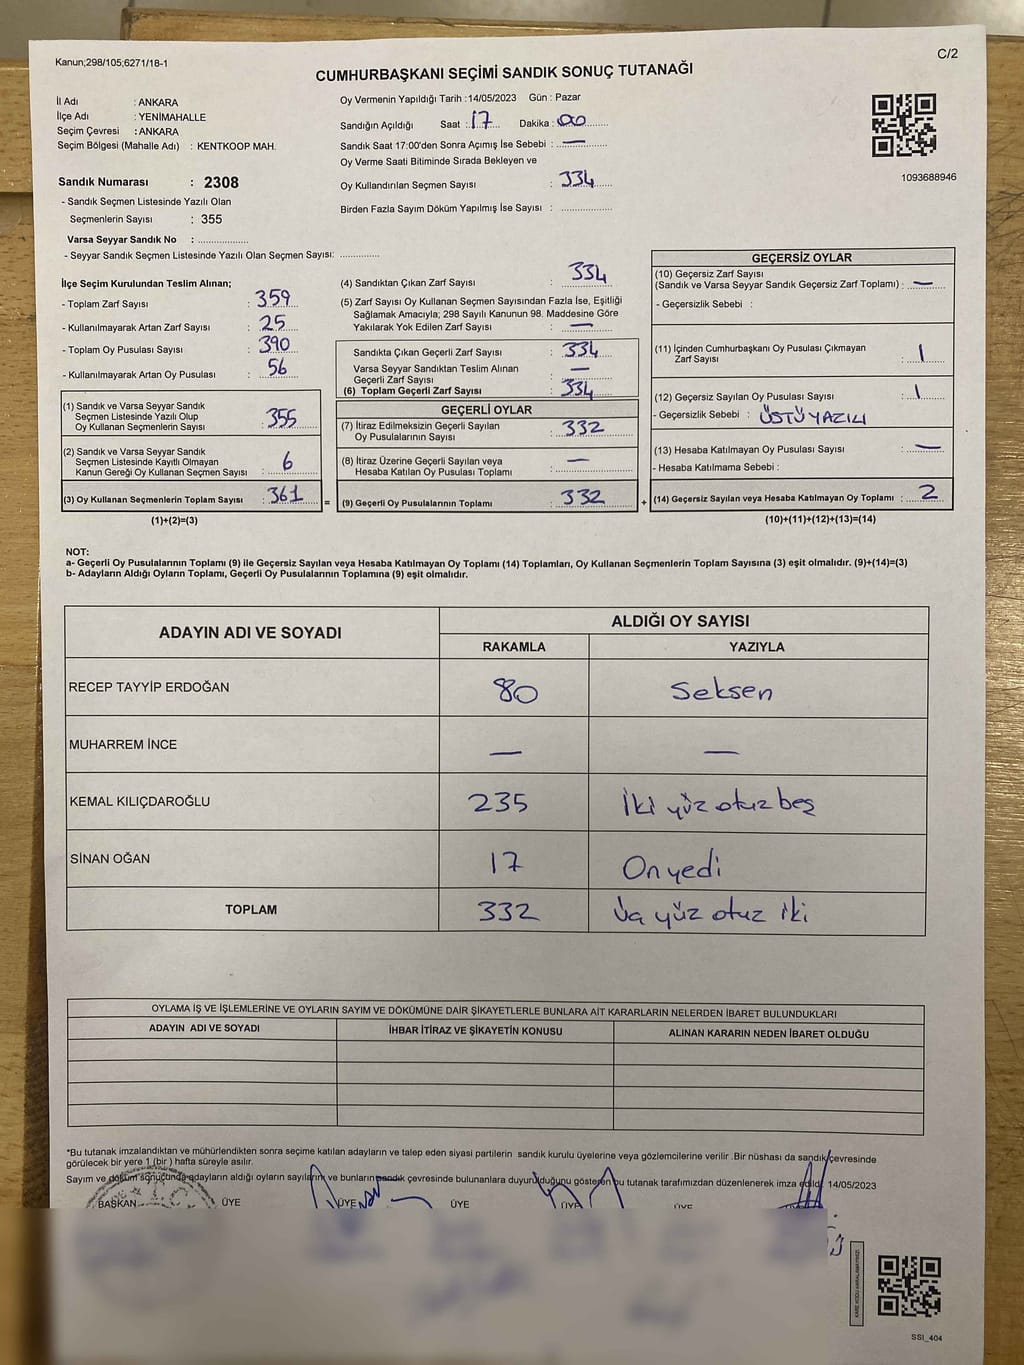 Kanun;298/105;6271/18-1
C/2
CUMHURBAŞKANI SEÇİMİ SANDIK SONUÇ TUTANAĞI
İl Adı : ANKARA
İlçe Adı : YENİMAHALLE
Seçim Çevresi : ANKARA
Seçim Bölgesi (Mahalle Adı) : KENTKOOP MAH.
Oy Vermenin Yapıldığı Tarih :14/05/2023 Gün : Pazar
Sandığın Açıldığı Saat : 17 Dakika : 00
Sandık Saat 17:00'den Sonra Açımış İse Sebebi : —
Oy Verme Saati Bitiminde Sırada Bekleyen ve
Oy Kullandırılan Seçmen Sayısı : 334
Birden Fazla Sayım Döküm Yapılmış İse Sayısı : ..................
1093688946
Sandık Numarası : 2308
- Sandık Seçmen Listesinde Yazılı Olan
Seçmenlerin Sayısı : 355
Varsa Seyyar Sandık No : ..................
- Seyyar Sandık Seçmen Listesinde Yazılı Olan Seçmen Sayısı: ..............
İlçe Seçim Kurulundan Teslim Alınan;
- Toplam Zarf Sayısı : 359
- Kullanılmayarak Artan Zarf Sayısı : 25
- Toplam Oy Pusulası Sayısı : 390
- Kullanılmayarak Artan Oy Pusulası : 56
(1) Sandık ve Varsa Seyyar Sandık
Seçmen Listesinde Yazılı Olup
Oy Kullanan Seçmenlerin Sayısı : 355
(2) Sandık ve Varsa Seyyar Sandık
Seçmen Listesinde Kayıtlı Olmayan
Kanun Gereği Oy Kullanan Seçmen Sayısı : 6
(3) Oy Kullanan Seçmenlerin Toplam Sayısı : 361 =
(1)+(2)=(3)
(4) Sandıktan Çıkan Zarf Sayısı : 334
(5) Zarf Sayısı Oy Kullanan Seçmen Sayısından Fazla İse, Eşitliği
Sağlamak Amacıyla; 298 Sayılı Kanunun 98. Maddesine Göre
Yakılarak Yok Edilen Zarf Sayısı : —
Sandıkta Çıkan Geçerli Zarf Sayısı : 334
Varsa Seyyar Sandıktan Teslim Alınan
Geçerli Zarf Sayısı : —
(6) Toplam Geçerli Zarf Sayısı : 334
GEÇERLİ OYLAR
(7) İtiraz Edilmeksizin Geçerli Sayılan
Oy Pusulalarının Sayısı : 332
(8) İtiraz Üzerine Geçerli Sayılan veya
Hesaba Katılan Oy Pusulası Toplamı : —
(9) Geçerli Oy Pusulalarının Toplamı : 332 +
GEÇERSİZ OYLAR
(10) Geçersiz Zarf Sayısı
(Sandık ve Varsa Seyyar Sandık Geçersiz Zarf Toplamı) : —
- Geçersizlik Sebebi :
(11) İçinden Cumhurbaşkanı Oy Pusulası Çıkmayan
Zarf Sayısı : 1
(12) Geçersiz Sayılan Oy Pusulası Sayısı : 1
- Geçersizlik Sebebi : ÜSTÜ YAZILI
(13) Hesaba Katılmayan Oy Pusulası Sayısı : —
- Hesaba Katılmama Sebebi :
(14) Geçersiz Sayılan veya Hesaba Katılmayan Oy Toplamı : 2
(10)+(11)+(12)+(13)=(14)
NOT:
a- Geçerli Oy Pusulalarının Toplamı (9) ile Geçersiz Sayılan veya Hesaba Katılmayan Oy Toplamı (14) Toplamları, Oy Kullanan Seçmenlerin Toplam Sayısına (3) eşit olmalıdır. (9)+(14)=(3)
b- Adayların Aldığı Oyların Toplamı, Geçerli Oy Pusulalarının Toplamına (9) eşit olmalıdır.
ADAYIN ADI VE SOYADI ALDIĞI OY SAYISI
RAKAMLA YAZIYLA
RECEP TAYYİP ERDOĞAN 80 Seksen
MUHARREM İNCE — —
KEMAL KILIÇDAROĞLU 235 İki yüz otuz beş
SİNAN OĞAN 17 On yedi
TOPLAM 332 Üç yüz otuz iki
OYLAMA İŞ VE İŞLEMLERİNE VE OYLARIN SAYIM VE DÖKÜMÜNE DAİR ŞİKAYETLERLE BUNLARA AİT KARARLARIN NELERDEN İBARET BULUNDUKLARI
ADAYIN ADI VE SOYADI İHBAR İTİRAZ VE ŞİKAYETİN KONUSU ALINAN KARARIN NEDEN İBARET OLDUĞU
*Bu tutanak imzalandıktan ve mühürlendikten sonra seçime katılan adayların ve talep eden siyasi partilerin sandık kurulu üyelerine veya gözlemcilerine verilir .Bir nüshası da sandık çevresinde
görülecek bir yere 1 (bir ) hafta süreyle asılır.
Sayım ve döküm sonucunda adayların aldığı oyların sayıların ve bunların sandık çevresinde bulunanlara duyurulduğunu gösteren bu tutanak tarafımızdan düzenlenerek imza edildi. 14/05/2023
BAŞKAN ÜYE ÜYE ÜYE ÜYE ÜYE
SSI_404